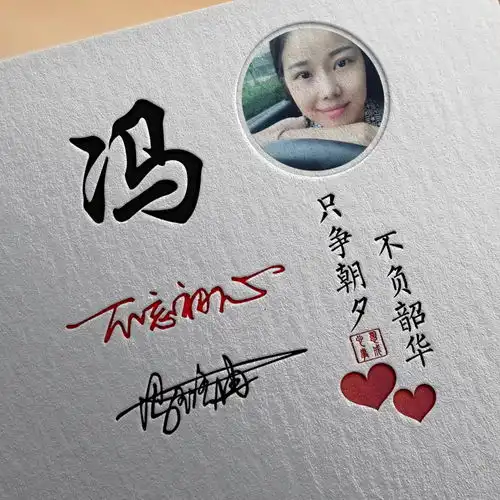 冯
只争朝夕
不负韶华
不忘初心